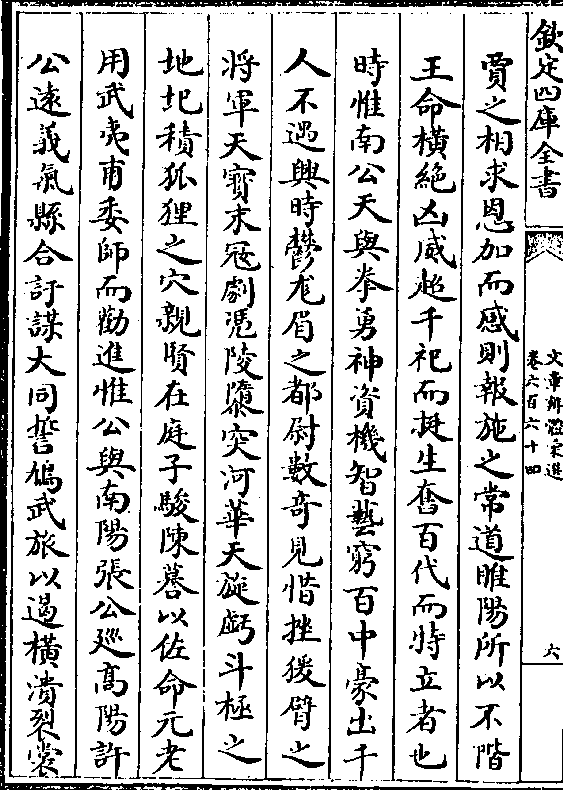 欽定四庫全書
文章辨體彚選
卷六百六十四
六
賈之相求恩加而感則報施之常道睢陽所以不階
王命橫絶凶威超千祀而挺生奮百代而特立者也
時惟南公天與拳勇神資機智藝窮百中豪出千
人不遇興時鬱尨眉之都尉數竒見惜挫猨臂之
將軍天寳末冦劇憑陵隳突河華天旋虧斗極之
地圯積狐狸之穴親賢在庭子駿陳謩以佐命元老
用武夷甫委師而勸進惟公與南陽張公廵髙陽許
公逺義氣縣合訏謀大同誓鳩武旅以遏橫潰裂裳